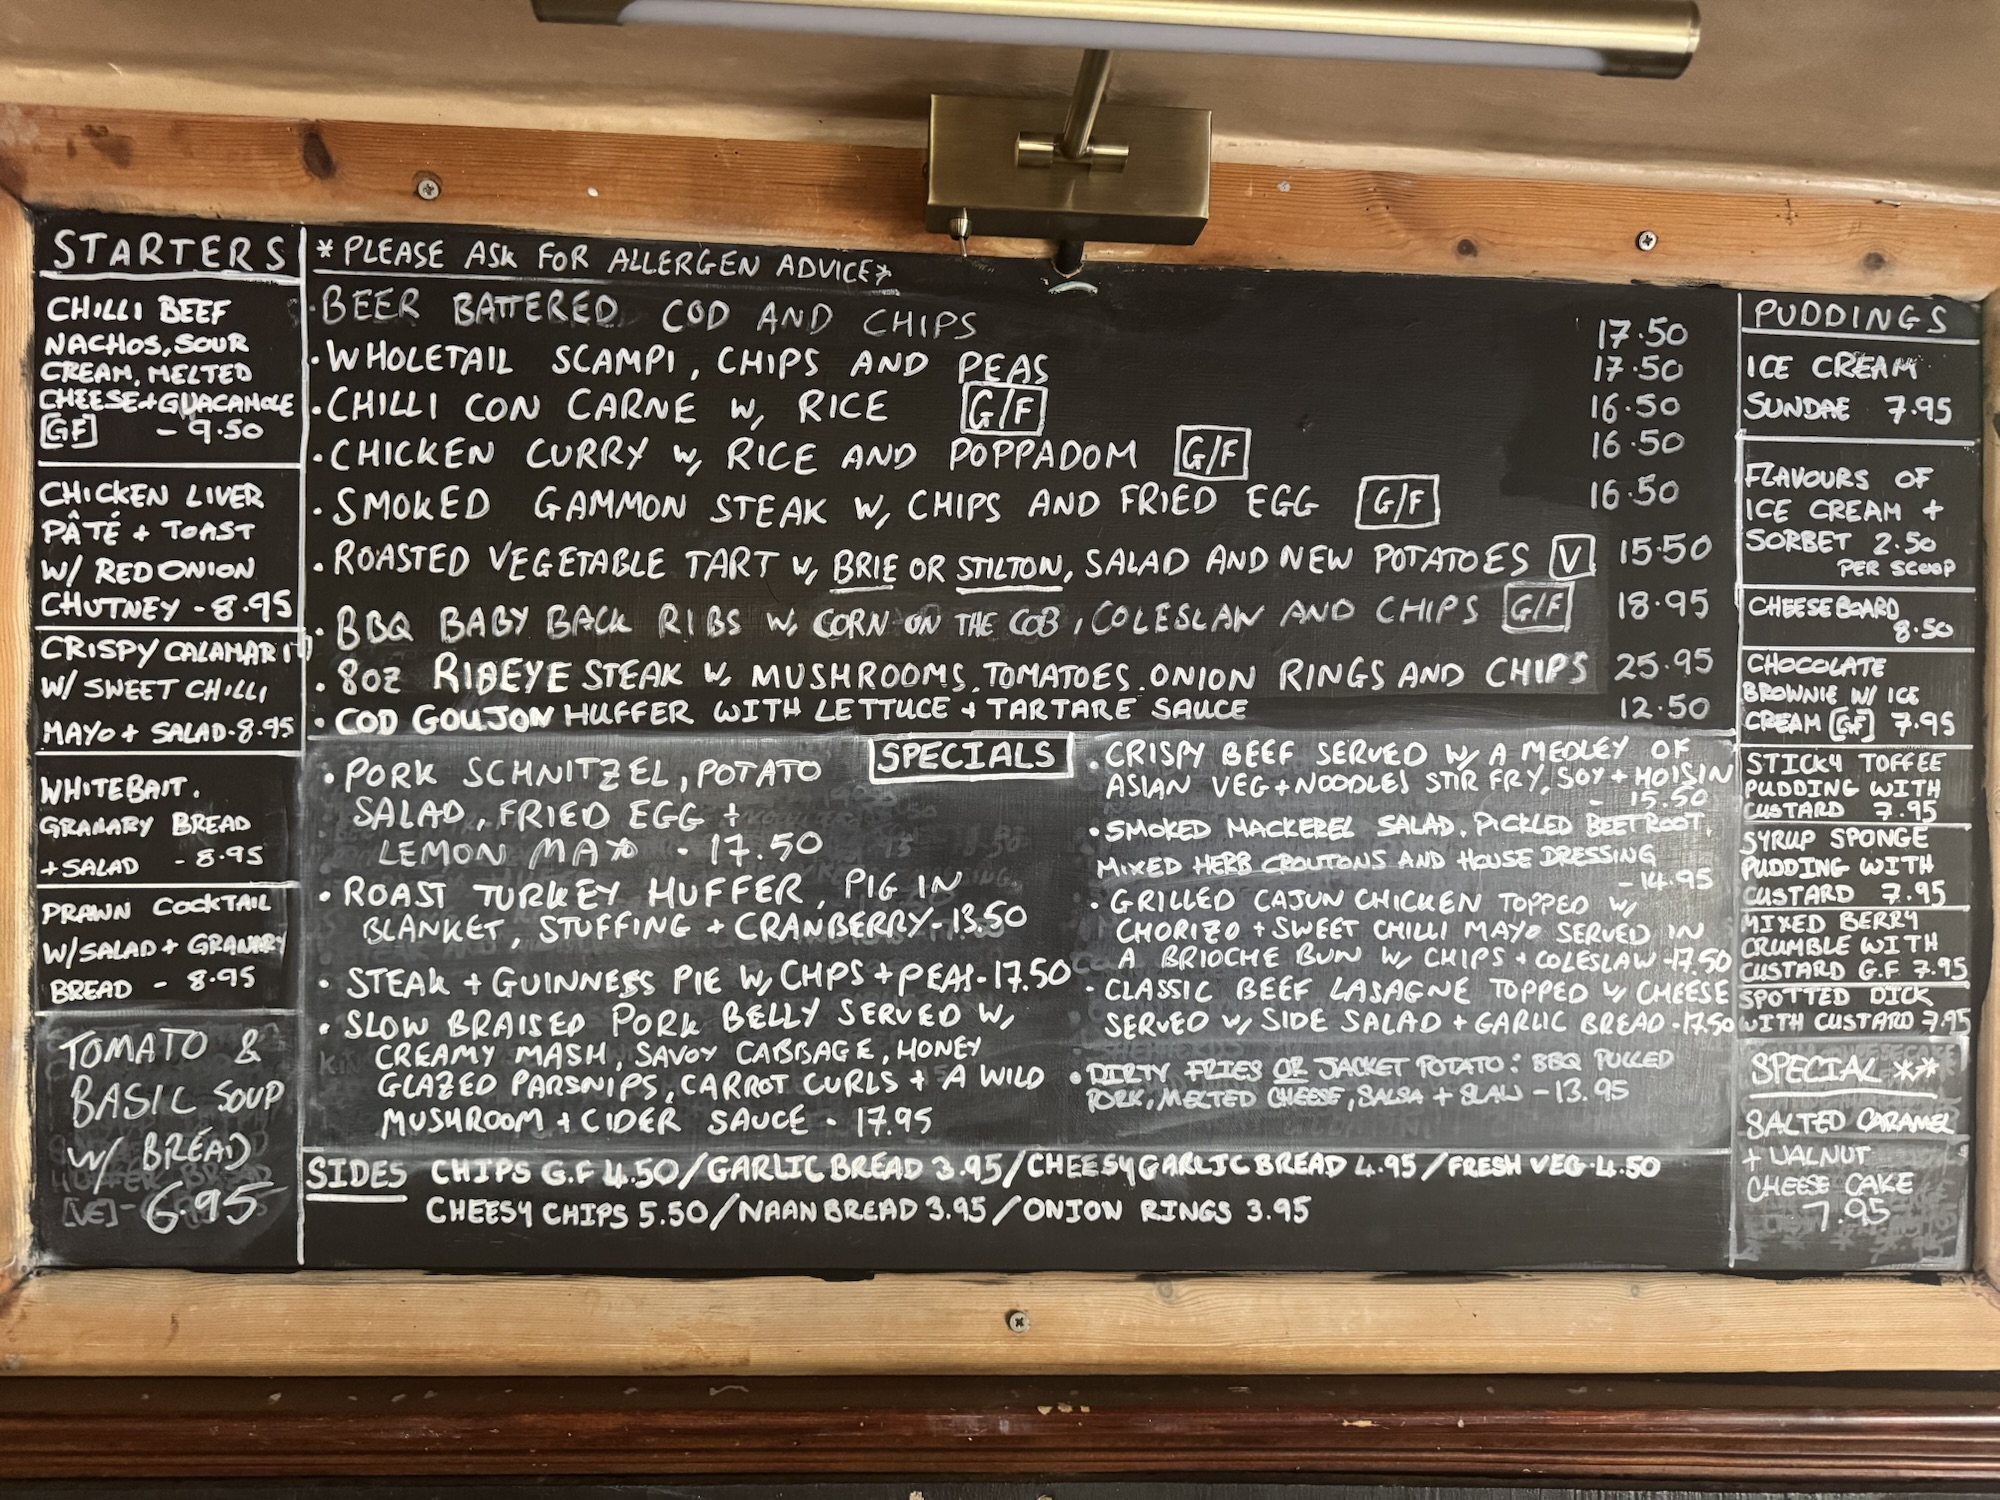 STARTERS
CHILLI BEEF
NACHOS, SOUR
CREAM, MELTED
CHEESE + GUACAMOLE
[GF] - 9.50
CHICKEN LIVER
PÂTÉ + TOAST
W/ RED ONION
CHUTNEY - 8.95
CRISPY CALAMARI
W/ SWEET CHILLI
MAYO + SALAD - 8.95
WHITEBAIT.
GRANARY BREAD
+ SALAD - 8.95
PRAWN COCKTAIL
W/ SALAD + GRANARY
BREAD - 8.95
TOMATO &
BASIL SOUP
W/ BREAD
[VE] - 6.95
*PLEASE ASK FOR ALLERGEN ADVICE*
· BEER BATTERED COD AND CHIPS 17.50
· WHOLETAIL SCAMPI, CHIPS AND PEAS 17.50
· CHILLI CON CARNE W, RICE G/F 16.50
· CHICKEN CURRY W, RICE AND POPPADOM G/F 16.50
· SMOKED GAMMON STEAK W, CHIPS AND FRIED EGG G/F 16.50
· ROASTED VEGETABLE TART W, BRIE OR STILTON, SALAD AND NEW POTATOES V 15.50
· BBQ BABY BACK RIBS W, CORN ON THE COB, COLESLAW AND CHIPS G/F 18.95
· 8OZ RIBEYE STEAK W, MUSHROOMS, TOMATOES, ONION RINGS AND CHIPS 25.95
· COD GOUJON HUFFER WITH LETTUCE + TARTARE SAUCE 12.50
SPECIALS
· PORK SCHNITZEL, POTATO
SALAD, FRIED EGG +
LEMON MAYO - 17.50
· ROAST TURKEY HUFFER, PIG IN
BLANKET, STUFFING + CRANBERRY - 13.50
· STEAK + GUINNESS PIE W, CHPS + PEAS - 17.50
· SLOW BRAISED PORK BELLY SERVED W,
CREAMY MASH, SAVOY CABBAGE, HONEY
GLAZED PARSNIPS, CARROT CURLS + A WILD
MUSHROOM + CIDER SAUCE - 17.95
· CRISPY BEEF SERVED W/ A MEDLEY OF
ASIAN VEG + NOODLES STIR FRY, SOY + HOISIN
- 15.50
· SMOKED MACKEREL SALAD, PICKLED BEETROOT,
MIXED HERB CROUTONS AND HOUSE DRESSING
- 14.95
· GRILLED CAJUN CHICKEN TOPPED W/
CHORIZO + SWEET CHILLI MAYO SERVED IN
A BRIOCHE BUN W/ CHIPS + COLESLAW - 17.50
· CLASSIC BEEF LASAGNE TOPPED W/ CHEESE
SERVED W/ SIDE SALAD + GARLIC BREAD - 17.50
· DIRTY FRIES OR JACKET POTATO: BBQ PULLED
PORK, MELTED CHEESE, SALSA + SLAW - 13.95
SIDES CHIPS G.F 4.50 / GARLIC BREAD 3.95 / CHEESY GARLIC BREAD 4.95 / FRESH VEG - 4.50
CHEESY CHIPS 5.50 / NAAN BREAD 3.95 / ONION RINGS 3.95
PUDDINGS
ICE CREAM
SUNDAE 7.95
FLAVOURS OF
ICE CREAM +
SORBET 2.50
PER SCOOP
CHEESE BOARD
8.50
CHOCOLATE
BROWNIE W/ ICE
CREAM [GF] 7.95
STICKY TOFFEE
PUDDING WITH
CUSTARD 7.95
SYRUP SPONGE
PUDDING WITH
CUSTARD 7.95
MIXED BERRY
CRUMBLE WITH
CUSTARD G.F 7.95
SPOTTED DICK
WITH CUSTARD 7.95
SPECIAL **
SALTED CARAMEL
+ WALNUT
CHEESE CAKE
7.95